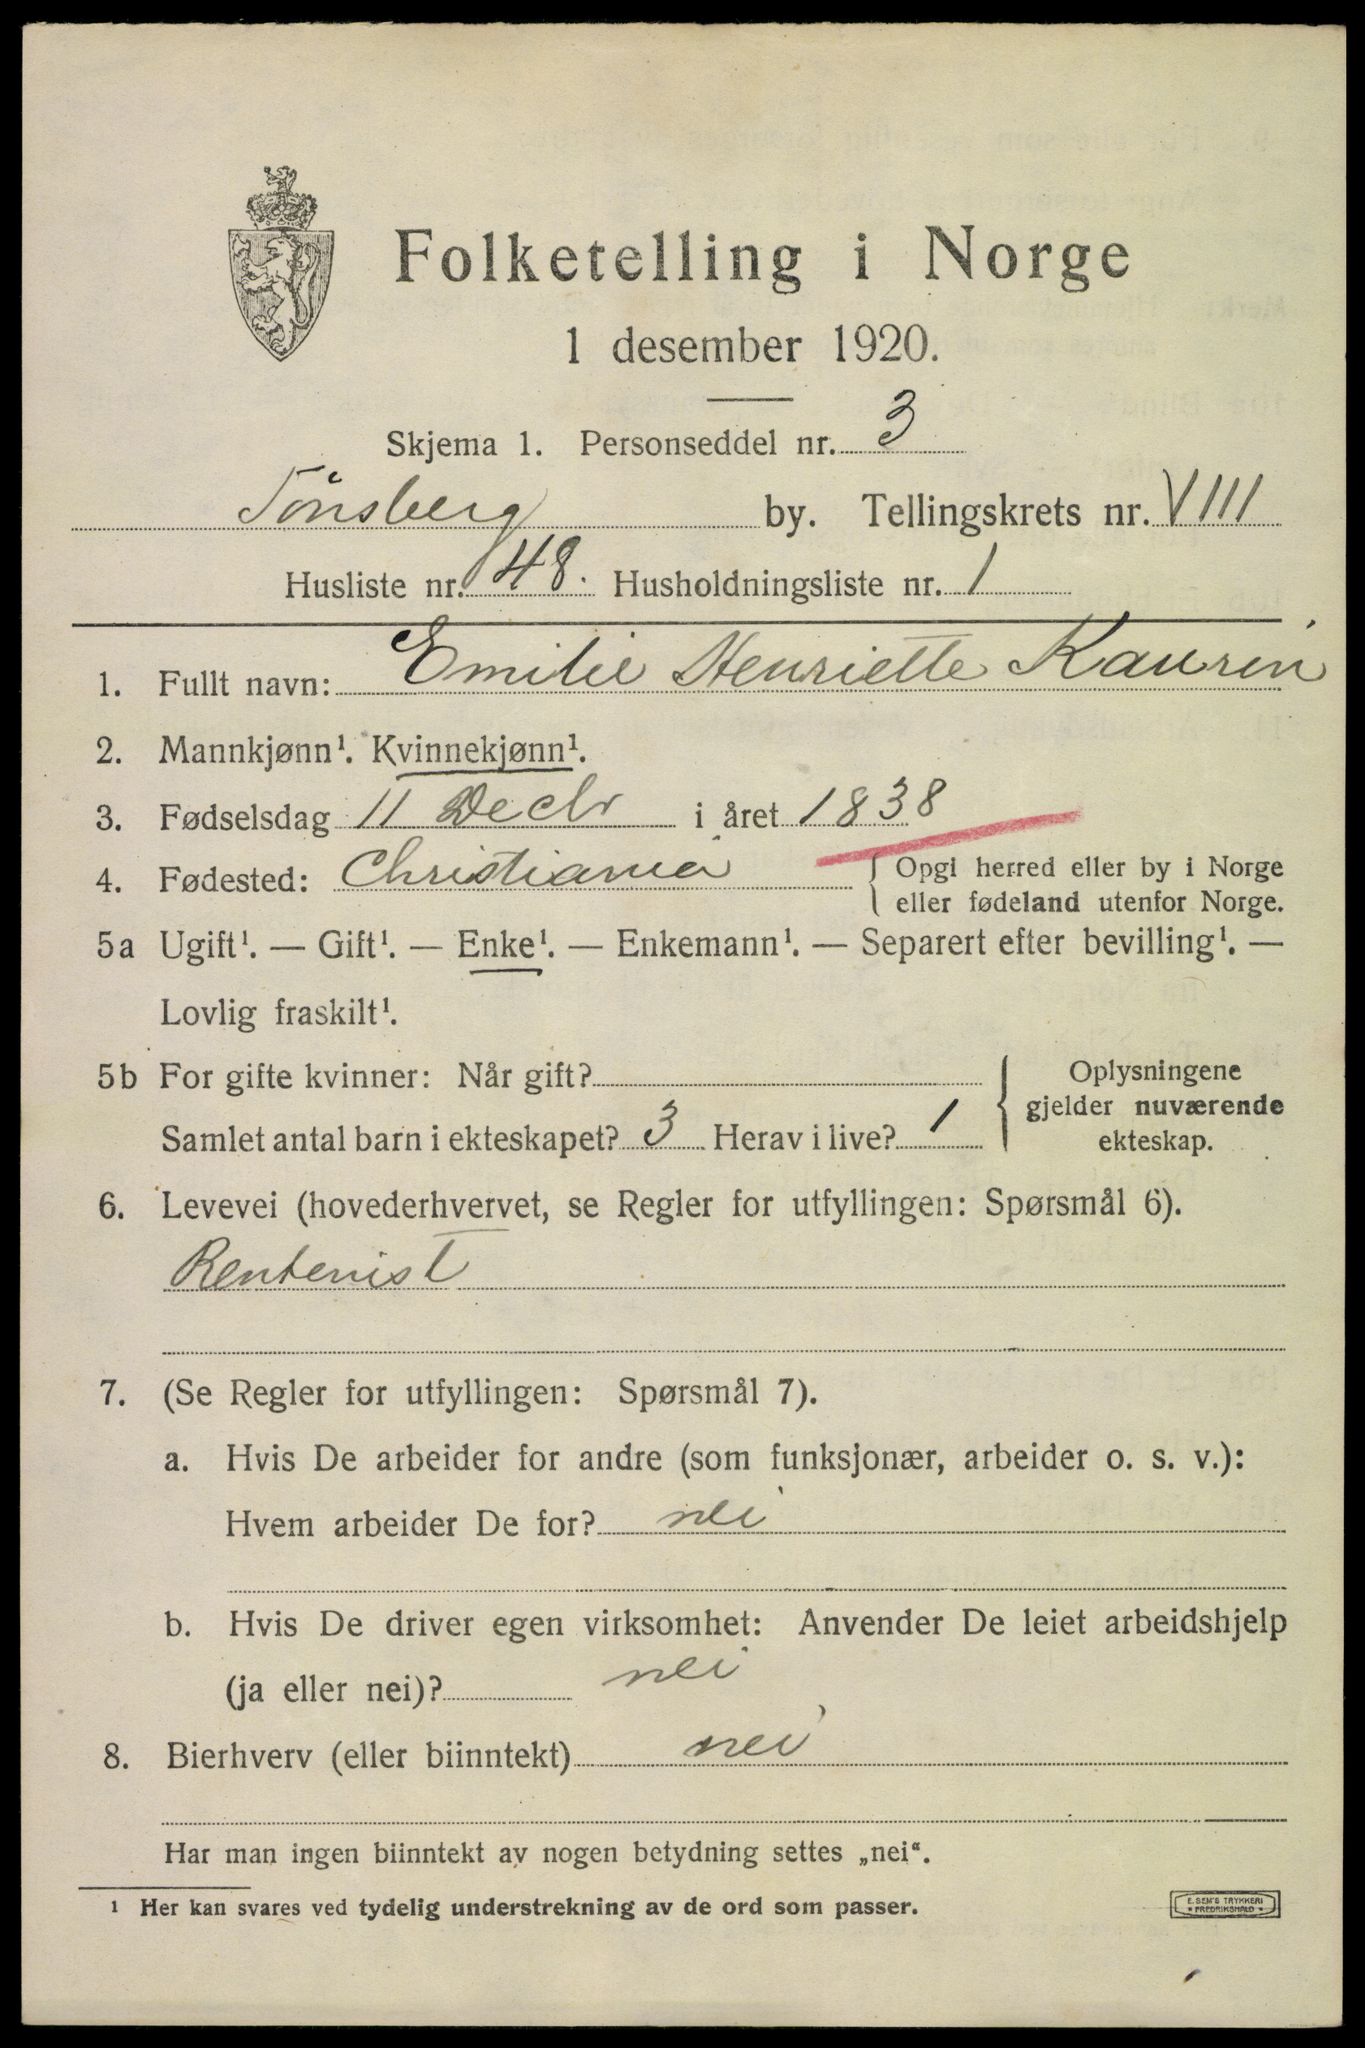 Folketelling i Norge
1 desember 1920.
Skjema 1. Personseddel nr. 3
Tönsberg by. Tellingskrets nr. VIII
Husliste nr. 48. Husholdningsliste nr. 1
1. Fullt navn: Emilie Henriette Kaurin
2. Mannkjønn¹. Kvinnekjønn¹.
3. Fødselsdag 11 Decbr i året 1838
4. Fødested: Christiania { Opgi herred eller by i Norge
eller fødeland utenfor Norge.
5a Ugift¹. — Gift¹. — Enke¹. — Enkemann¹. — Separert efter bevilling¹. —
Lovlig fraskilt¹.
5b For gifte kvinner: Når gift?
Samlet antal barn i ekteskapet? 3 Herav i live? 1
Oplysningene
gjelder nuværende
ekteskap.
6. Levevei (hovederhvervet, se Regler for utfyllingen: Spørsmål 6).
Rentenist
7. (Se Regler for utfyllingen: Spørsmål 7).
a. Hvis De arbeider for andre (som funksjonær, arbeider o. s. v.):
Hvem arbeider De for? nei
b. Hvis De driver egen virksomhet: Anvender De leiet arbeidshjelp
(ja eller nei)? nei
8. Bierhverv (eller biinntekt) nei
Har man ingen biinntekt av nogen betydning settes „nei“.
¹ Her kan svares ved tydelig understrekning av de ord som passer.
E. SEM'S TRYKKERI
* FREDRIKSHALD *